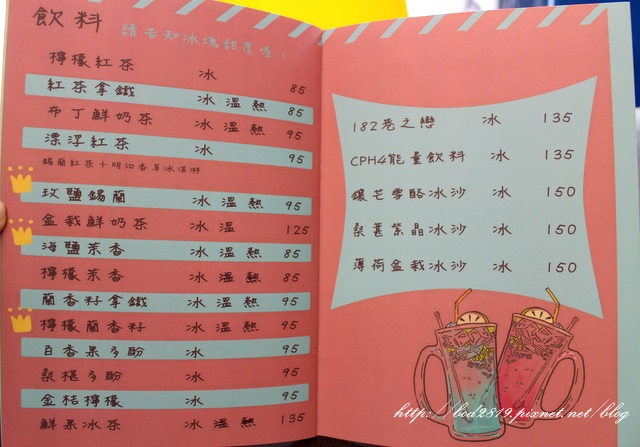 飲料 請告知冰塊甜度喔！
檸檬紅茶 冰 85
紅茶拿鐵 冰 溫 熱 85
布丁鮮奶茶 冰 溫 95
漂浮紅茶 冰 95
錫蘭紅茶＋明治香草冰淇淋
玫鹽錫蘭 冰 溫 熱 95
盆栽鮮奶茶 冰 溫 125
海鹽茉香 冰 溫 熱 85
檸檬茉香 冰 85
蘭香籽拿鐵 冰 溫 熱 95
檸檬蘭香籽 冰 溫 熱 95
百香果多酚 冰 95
桑椹多酚 冰 95
金桔檸檬 冰 95
鮮果冰茶 冰 溫 熱 135
182巷之戀 冰 135
CPH4能量飲料 冰 135
鑲芒雪酪冰沙 冰 150
桑葚紫晶冰沙 冰 150
薄荷盆栽冰沙 冰 150
http://bod2819.pixnet.net/blog